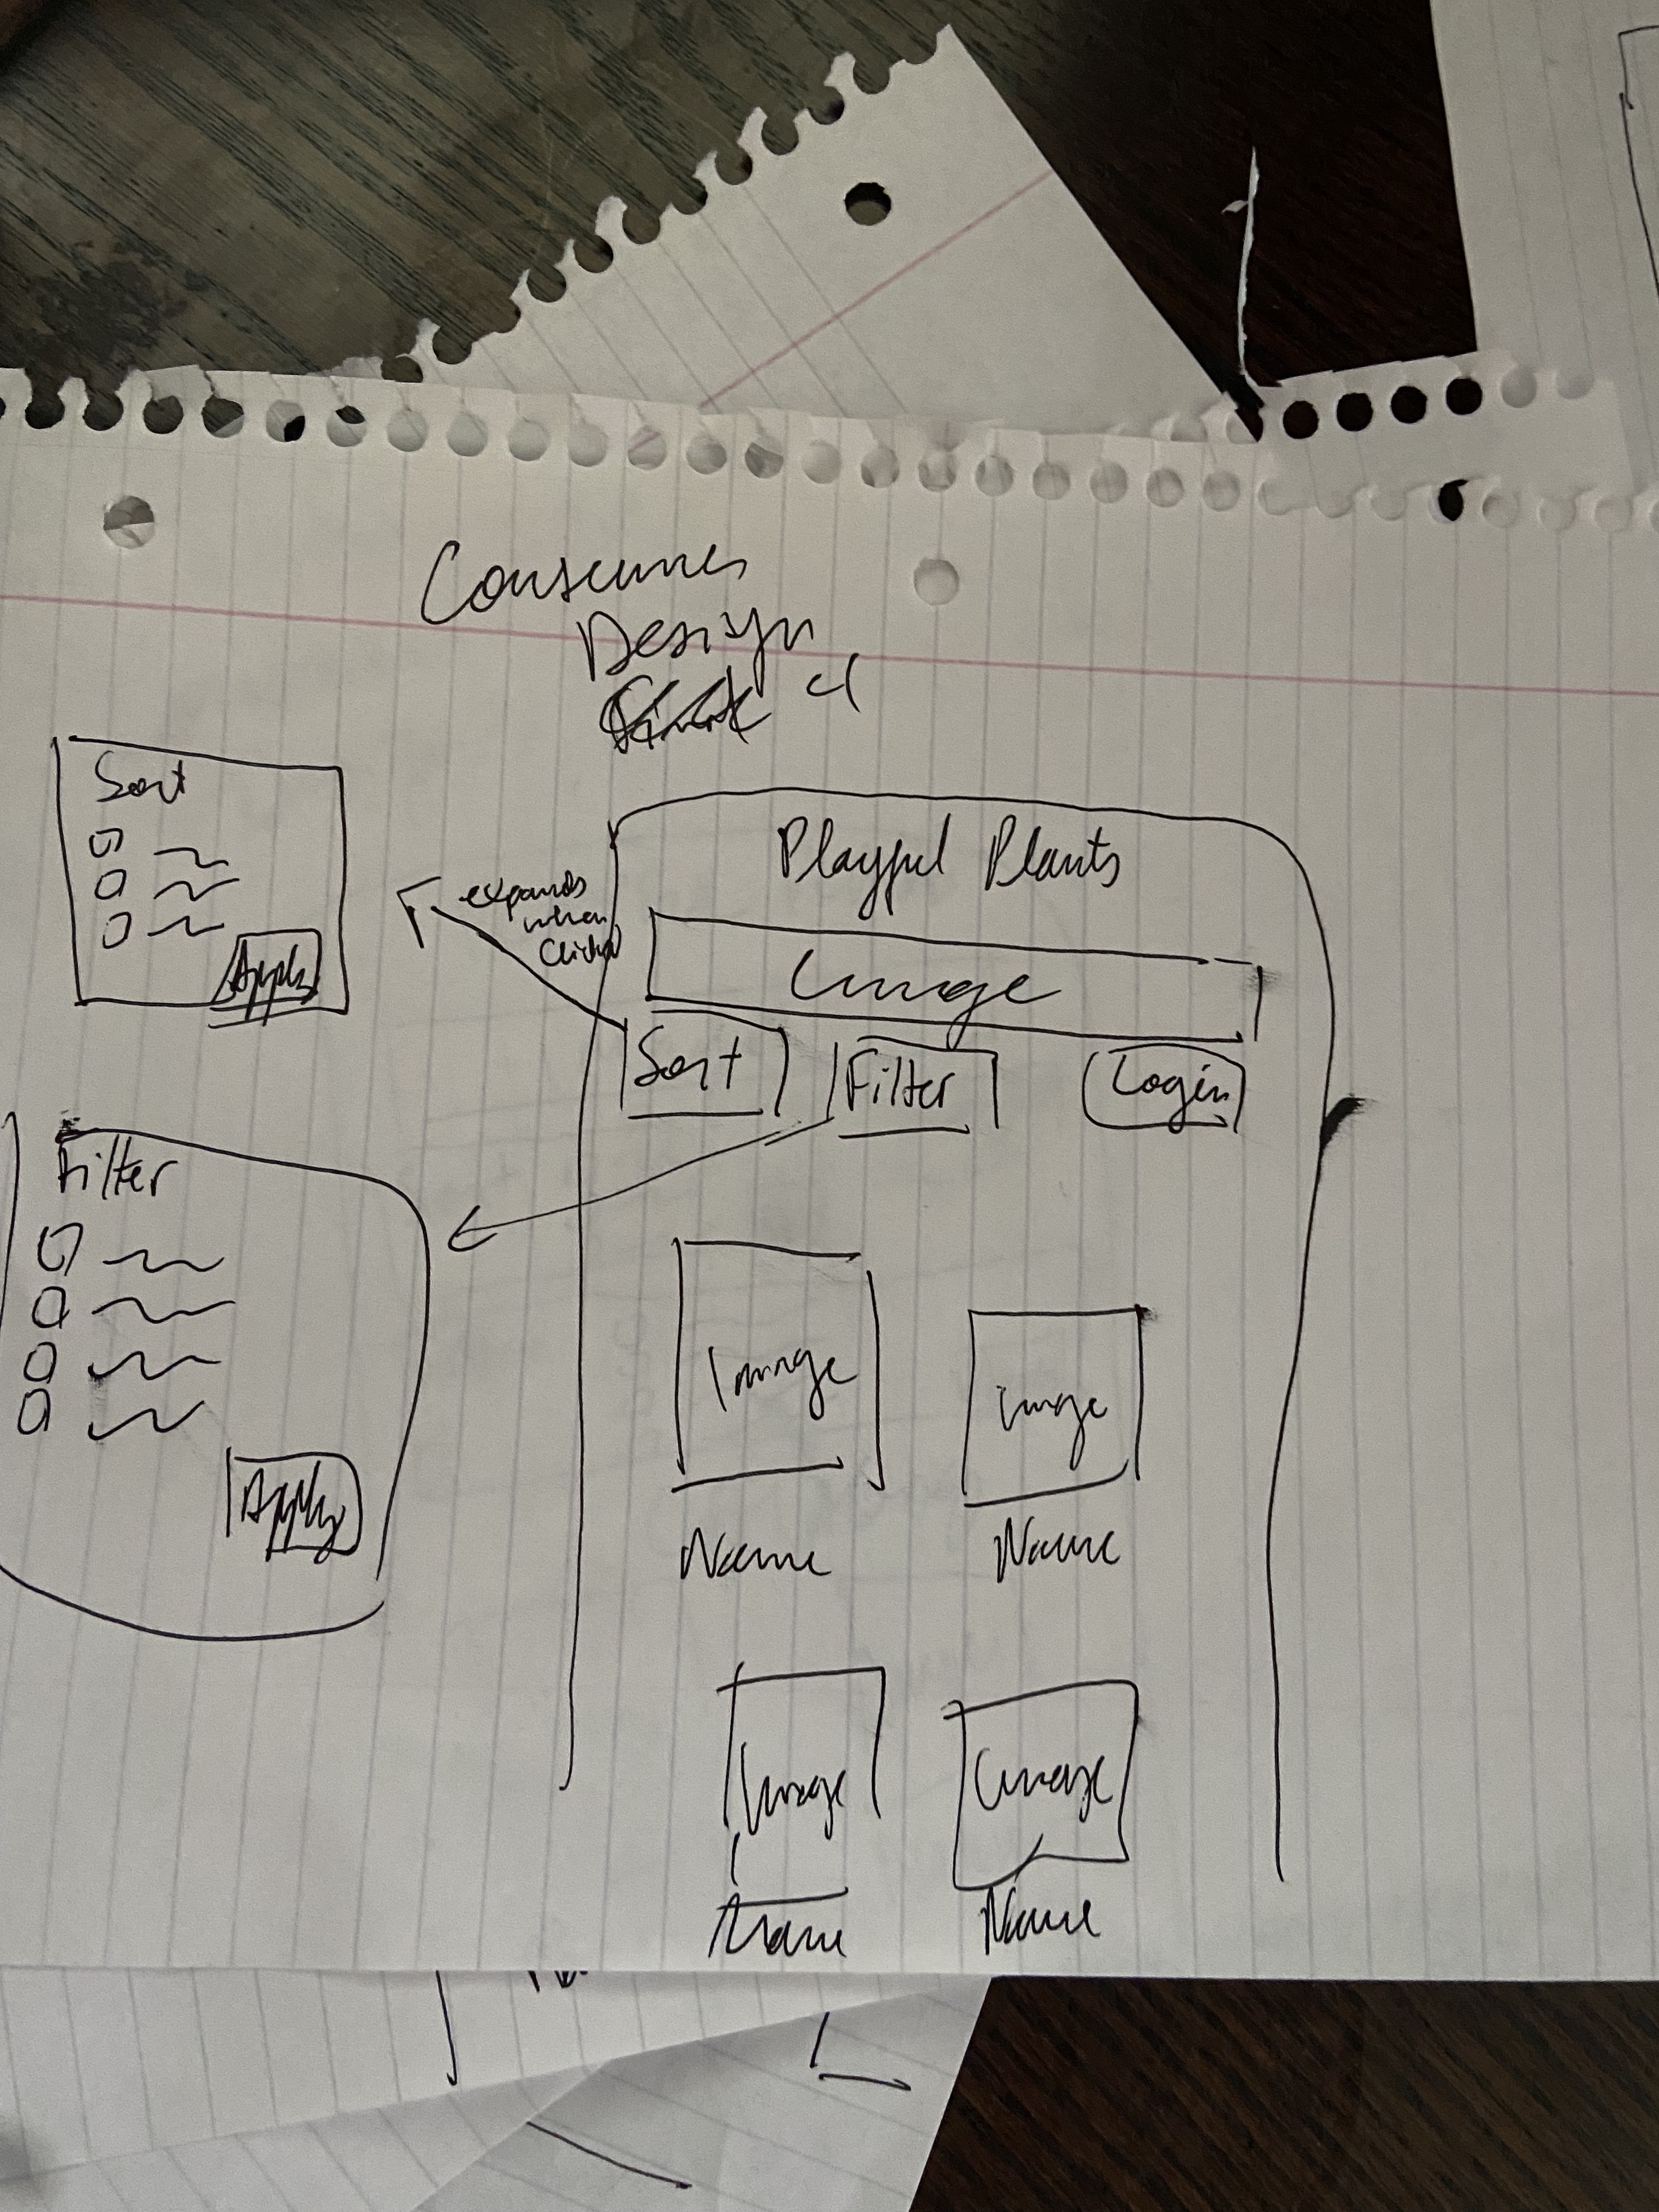 Consumer
Design
Sort
Apply
expands
when
Clicked
Playful Plants
Image
Sort
Filter
Login
Filter
Apply
Image
Image
Name
Name
Image
Image
Name
Name